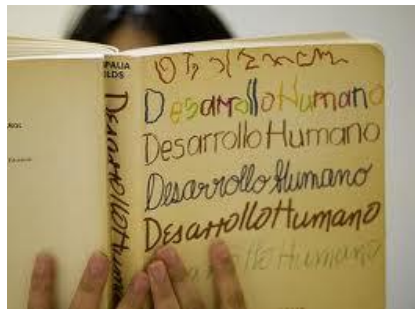 PAPALIA
OLDS
Desarrollo Humano
Desarrollo Humano
Desarrollo Humano
Desarrollo Humano
Desarrollo Humano
Desarrollo Humano